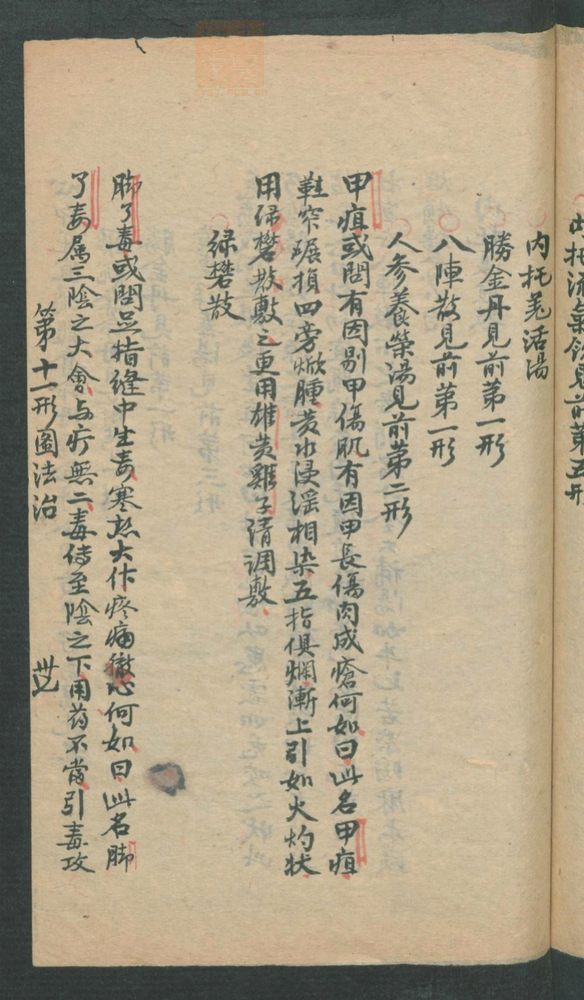 内托羗活湯
勝金丹見前第一形
八陣散見前第一形
人參養榮湯見前第二形
甲疽或問有因剔甲傷肌有因甲長傷肉成瘡何如曰此名甲疽
鞋窄碾損四旁焮腫黄水浸淫相染五指俱爛漸上引如火灼状
用绿礬散敷之更用雄黄雞子清調敷
绿礬散
脚了毒或問足指縫中生毒寒热大作疼痛徹心何如曰此名脚
了毒属三陰之大會与疔無二毒侍至陰之下用药不當引毒攻
第十一形圖法治